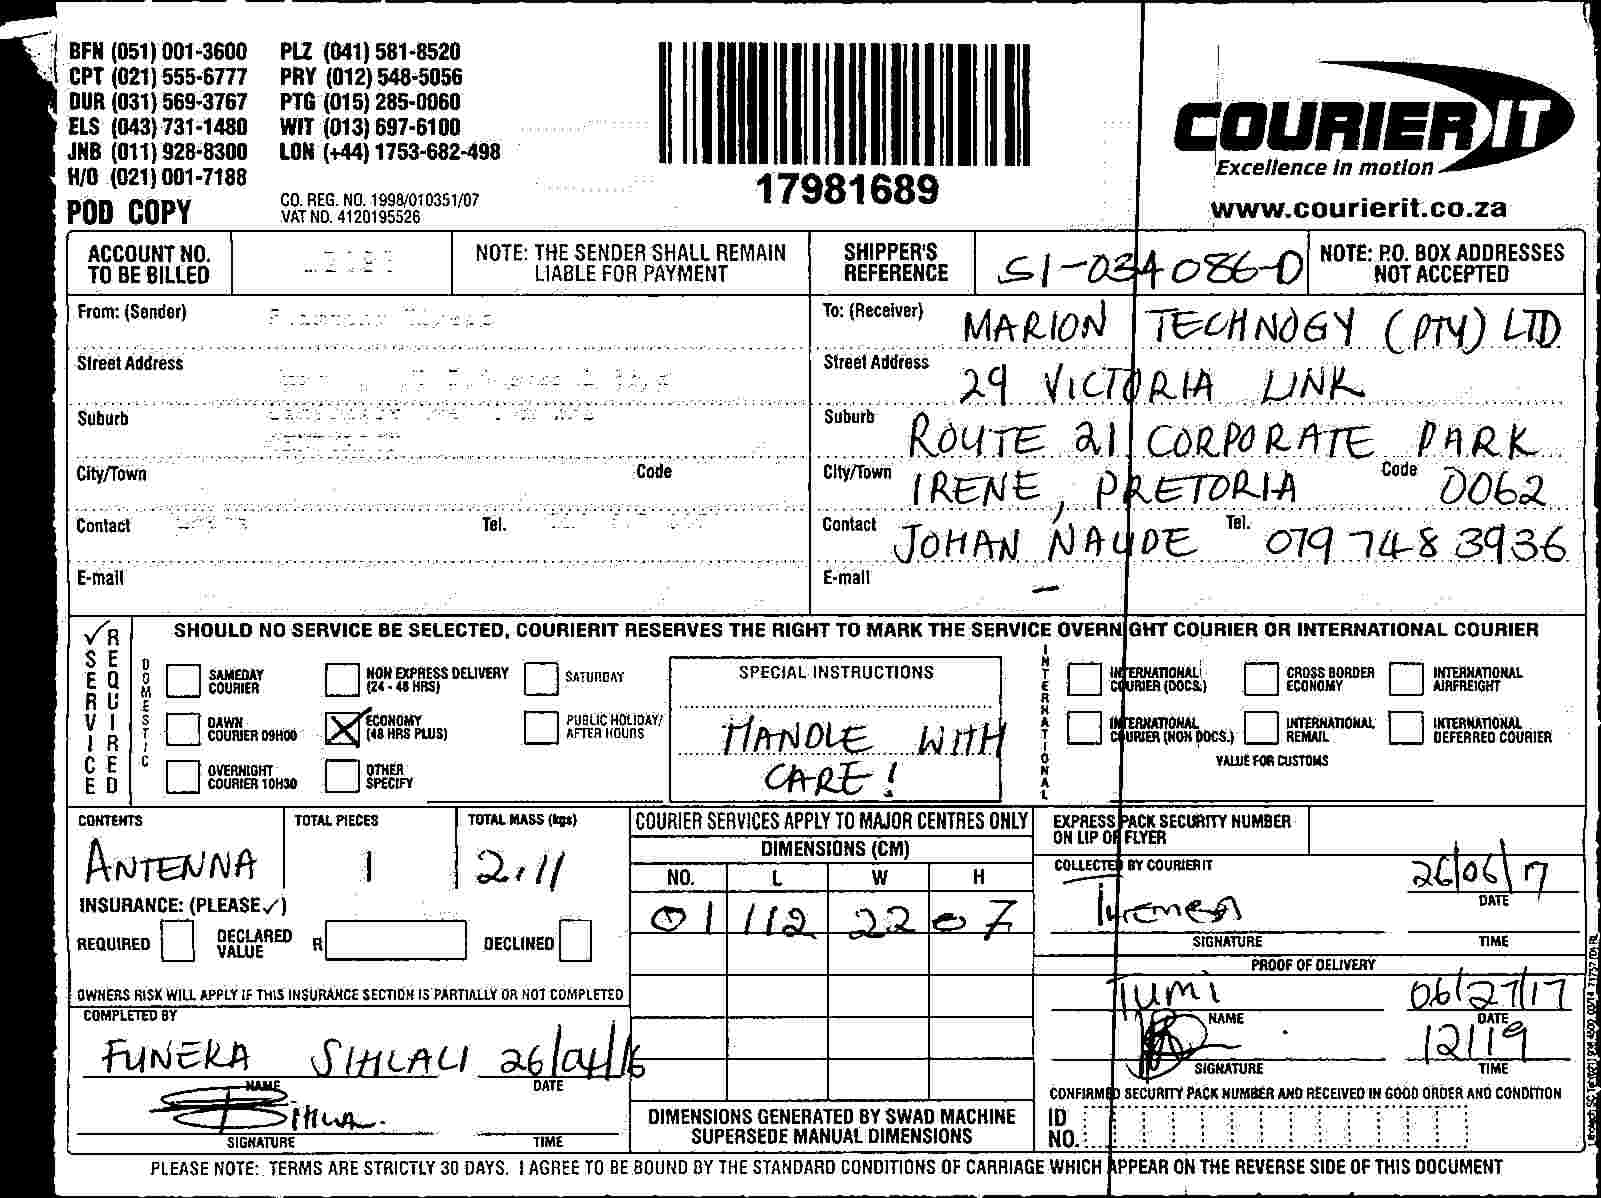 BFN (051) 001-3600 PLZ (041) 581-8520
CPT (021) 555-6777 PRY (012) 548-5056
DUR (031) 569-3767 PTG (015) 285-0060
ELS (043) 731-1480 WIT (013) 697-6100
JNB (011) 928-8300 LON (+44) 1753-682-498
H/O (021) 001-7188
POD COPY
CO. REG. NO. 1998/010351/07
VAT NO. 4120195526
17981689
COURIER IT
Excellence in motion
www.courierit.co.za
ACCOUNT NO. TO BE BILLED
NOTE: THE SENDER SHALL REMAIN LIABLE FOR PAYMENT
SHIPPER'S REFERENCE S1-034086-D
NOTE: P.O. BOX ADDRESSES NOT ACCEPTED
From: (Sender)
Street Address
Suburb
City/Town Code
Contact Tel.
E-mail
To: (Receiver) MARION TECHNOGY (PTY) LTD
Street Address 29 VICTORIA LINK
Suburb ROUTE 21 CORPORATE PARK
City/Town IRENE, PRETORIA Code 0062
Contact JOHAN NAUDE Tel. 079 748 3936
E-mail –
✓ SERVICE REQUIRED
SHOULD NO SERVICE BE SELECTED, COURIERIT RESERVES THE RIGHT TO MARK THE SERVICE OVERNIGHT COURIER OR INTERNATIONAL COURIER
DOMESTIC
SAMEDAY COURIER
NON EXPRESS DELIVERY (24 - 48 HRS)
SATURDAY
DAWN COURIER 09H00
X ECONOMY (48 HRS PLUS)
PUBLIC HOLIDAY/ AFTER HOURS
OVERNIGHT COURIER 10H30
OTHER SPECIFY
SPECIAL INSTRUCTIONS
HANDLE WITH
CARE!
INTERNATIONAL
INTERNATIONAL COURIER (DOCS.)
CROSS BORDER ECONOMY
INTERNATIONAL AIRFREIGHT
INTERNATIONAL COURIER (NON DOCS.)
INTERNATIONAL REMAIL
INTERNATIONAL DEFERRED COURIER
VALUE FOR CUSTOMS
CONTENTS TOTAL PIECES TOTAL MASS (kgs)
ANTENNA 1 2.11
INSURANCE: (PLEASE ✓)
REQUIRED DECLARED VALUE R DECLINED
OWNERS RISK WILL APPLY IF THIS INSURANCE SECTION IS PARTIALLY OR NOT COMPLETED
COMPLETED BY
FUNEKA SIHLALI
NAME DATE
SIGNATURE TIME
COURIER SERVICES APPLY TO MAJOR CENTRES ONLY
DIMENSIONS (CM)
NO. L W H
01 112 22 07
DIMENSIONS GENERATED BY SWAD MACHINE
SUPERSEDE MANUAL DIMENSIONS
EXPRESS PACK SECURITY NUMBER
ON LIP OF FLYER
COLLECTED BY COURIERIT
26/06/17
DATE
SIGNATURE TIME
PROOF OF DELIVERY
TUMI 06/27/17
NAME DATE
12/19
SIGNATURE TIME
CONFIRMED SECURITY PACK NUMBER AND RECEIVED IN GOOD ORDER AND CONDITION
ID NO.
PLEASE NOTE: TERMS ARE STRICTLY 30 DAYS. I AGREE TO BE BOUND BY THE STANDARD CONDITIONS OF CARRIAGE WHICH APPEAR ON THE REVERSE SIDE OF THIS DOCUMENT